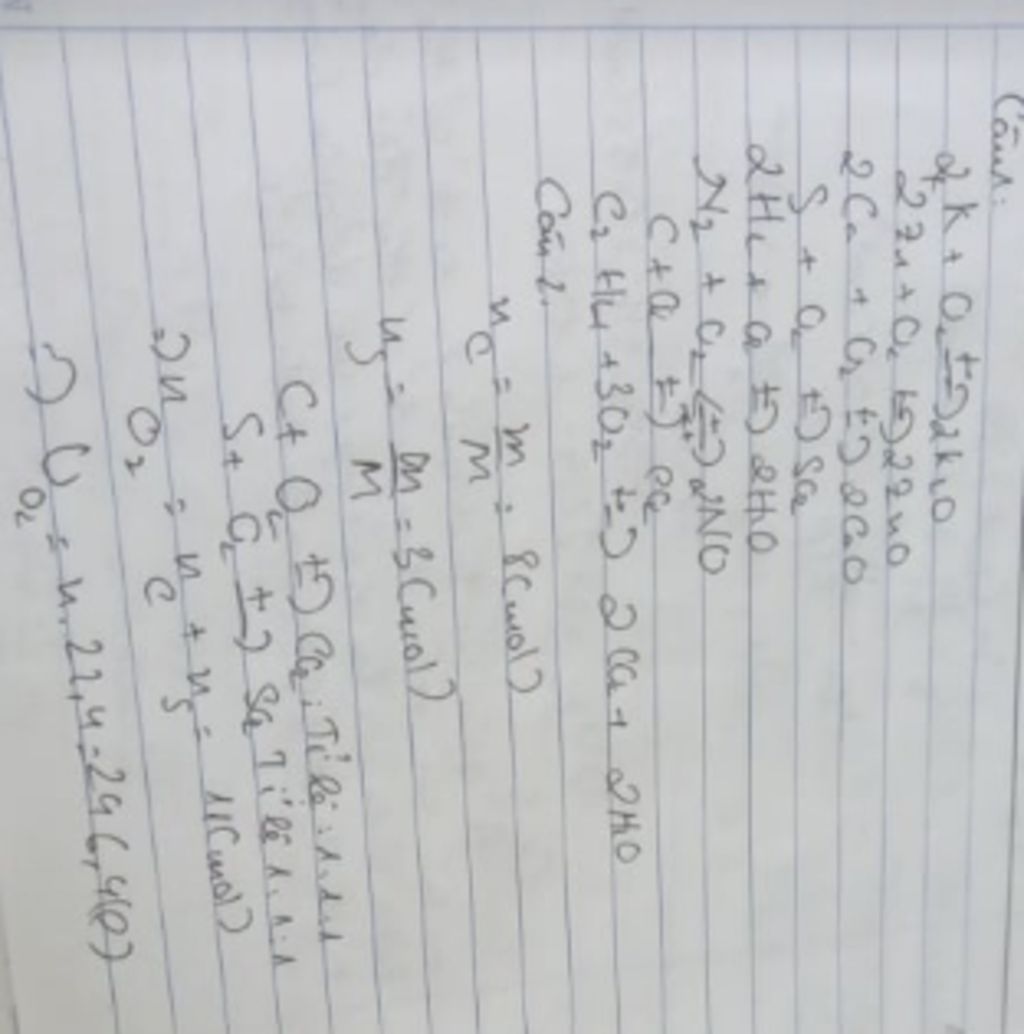 Câu 1.
2K + O2 t=> 2K2O
2Zn + O2 t=> 2ZnO
2Ca + O2 t=> 2CaO
S + O2 t=> SO2
2H2 + O2 t=> 2H2O
N2 + O2 <=> 2NO
C + O2 t=> CO2
C2H4 + 3O2 t=> 2CO2 + 2H2O
Câu 2.
nC = m/M = 8(mol)
nS = m/M = 3(mol)
C + O2 t=> CO2. Tỉ lệ: 1.1.1
S + O2 t=> SO2 Tỉ lệ 1.1.1
=> nO2 = nC + nS = 11(mol)
=> VO2 = n.22,4 = 246,4(l)